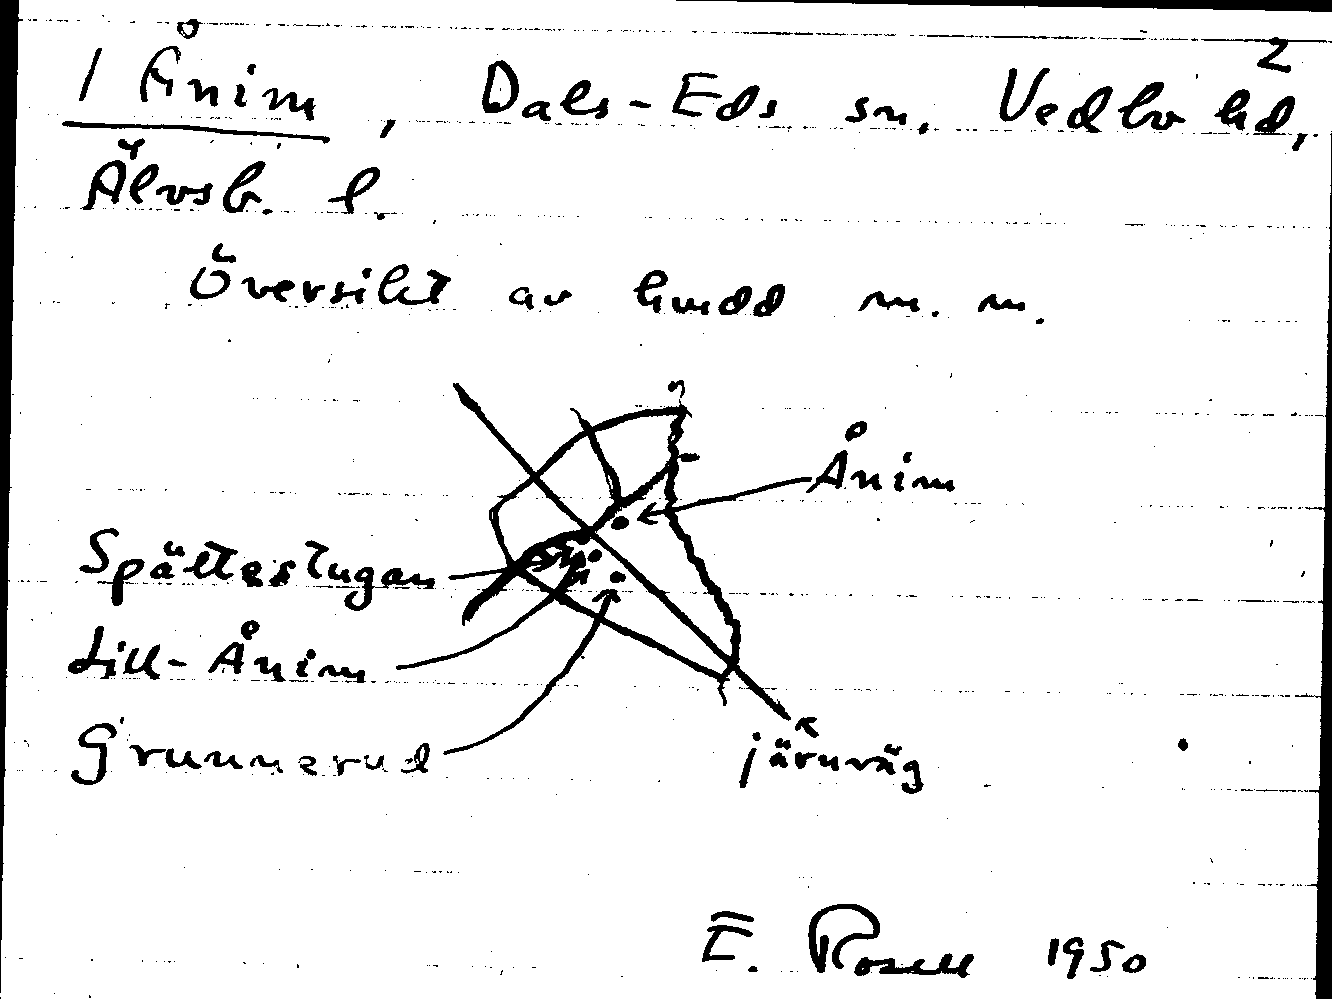 2
1 Ånim, Dals-Eds sn, Vedbo hd,
Älvsb. l.
Översikt av m. m.
Ånim
Spältestugan
Lill-Ånim
Grunnerud
järnväg
E. Rosell 1950